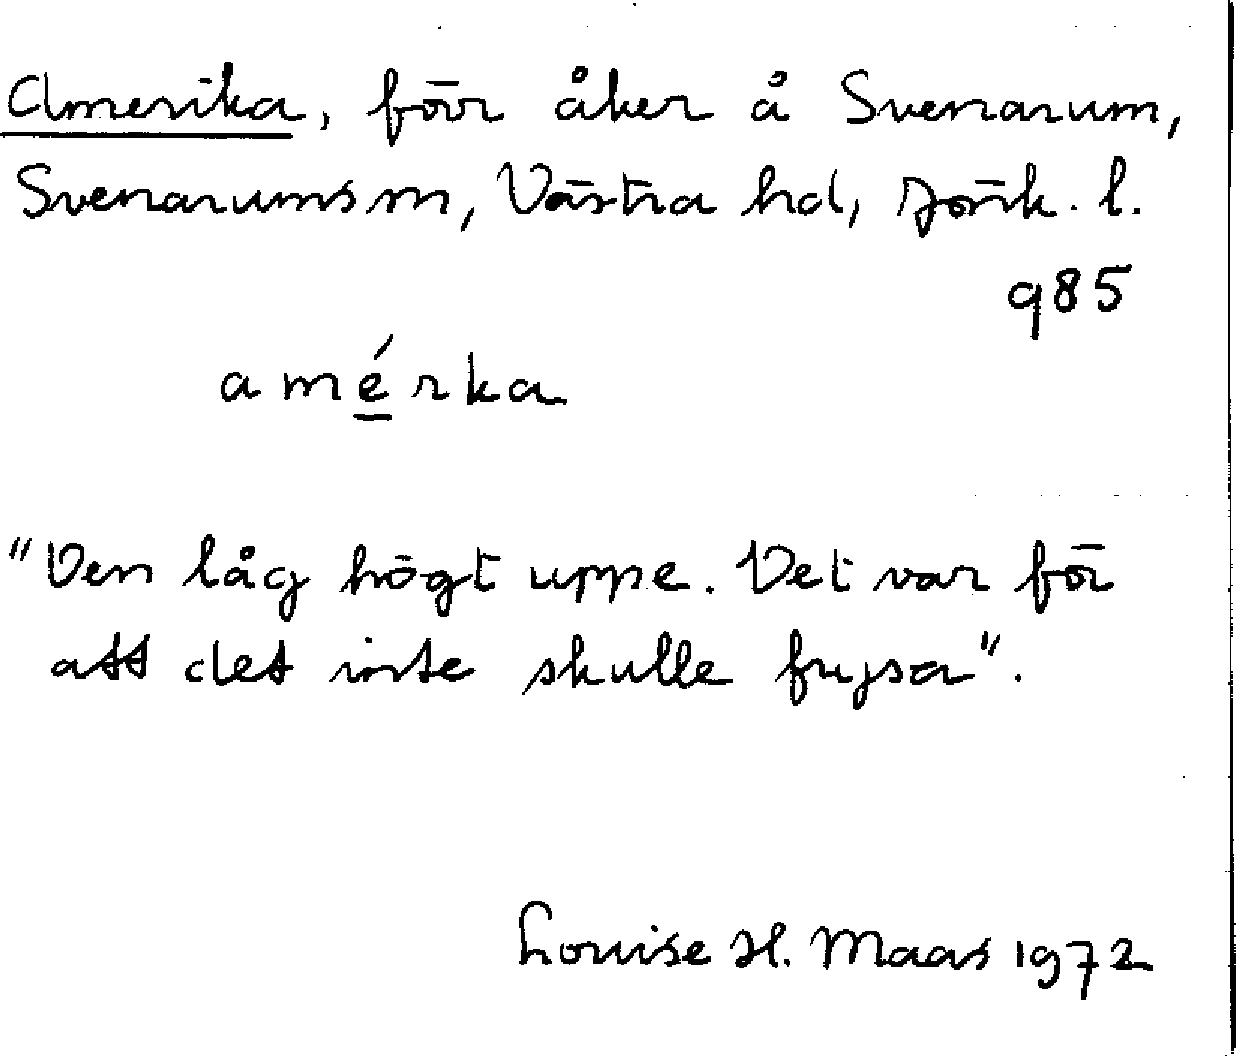 Amerika, förr åker å Svenarum,
Svenarums sn, Västra hd, Jönk. l.
985
amérka
"Den låg högt uppe. Det var för
att det inte skulle frysa".
Louise H. Maas 1972